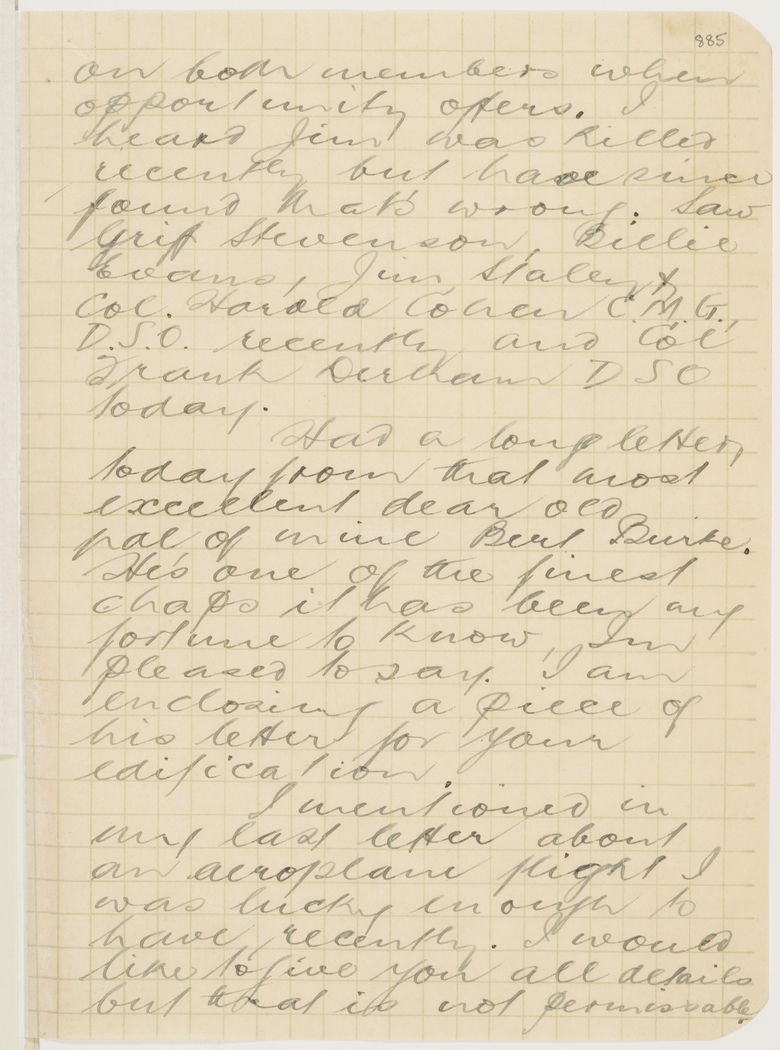 885
on both members when
opportunity offers. I
heard Jim was killed
recently but have since
found that's wrong. Saw
Grif Stevenson, Billie
Evans, Jim Staley &
Col. Harold Cohen C.M.G.,
D.S.O. recently and Col
Frank Derham D S O
today.
Had a long letter,
today from that most
excellent dear old
pal of mine Bert Burke.
He's one of the finest
chaps it has been my
fortune to know, I'm
pleased to say. I am
enclosing a piece of
his letter for your
edification.
I mentioned in
my last letter about
an aeroplane flight I
was lucky enough to
have recently. I would
like to give you all details
but that is not permissable